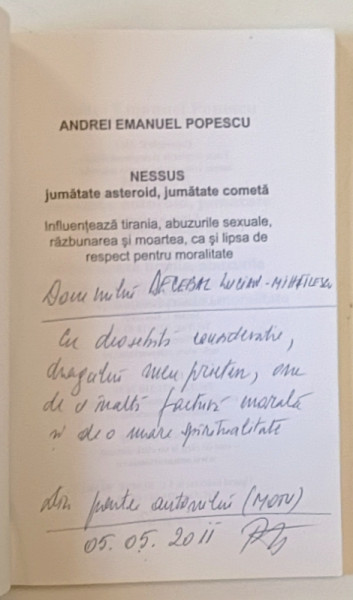 ANDREI EMANUEL POPESCU
NESSUS
jumătate asteroid, jumătate cometă
Influențează tirania, abuzurile sexuale,
răzbunarea și moartea, ca și lipsa de
respect pentru moralitate
Domnului DECEBAL LUCIAN-MIHĂILESCU
Cu deosebită considerație,
dragului meu prieten, om
de o înaltă factură morală
și de o mare spiritualitate
din partea autorului (MOTU)
05.05.2011